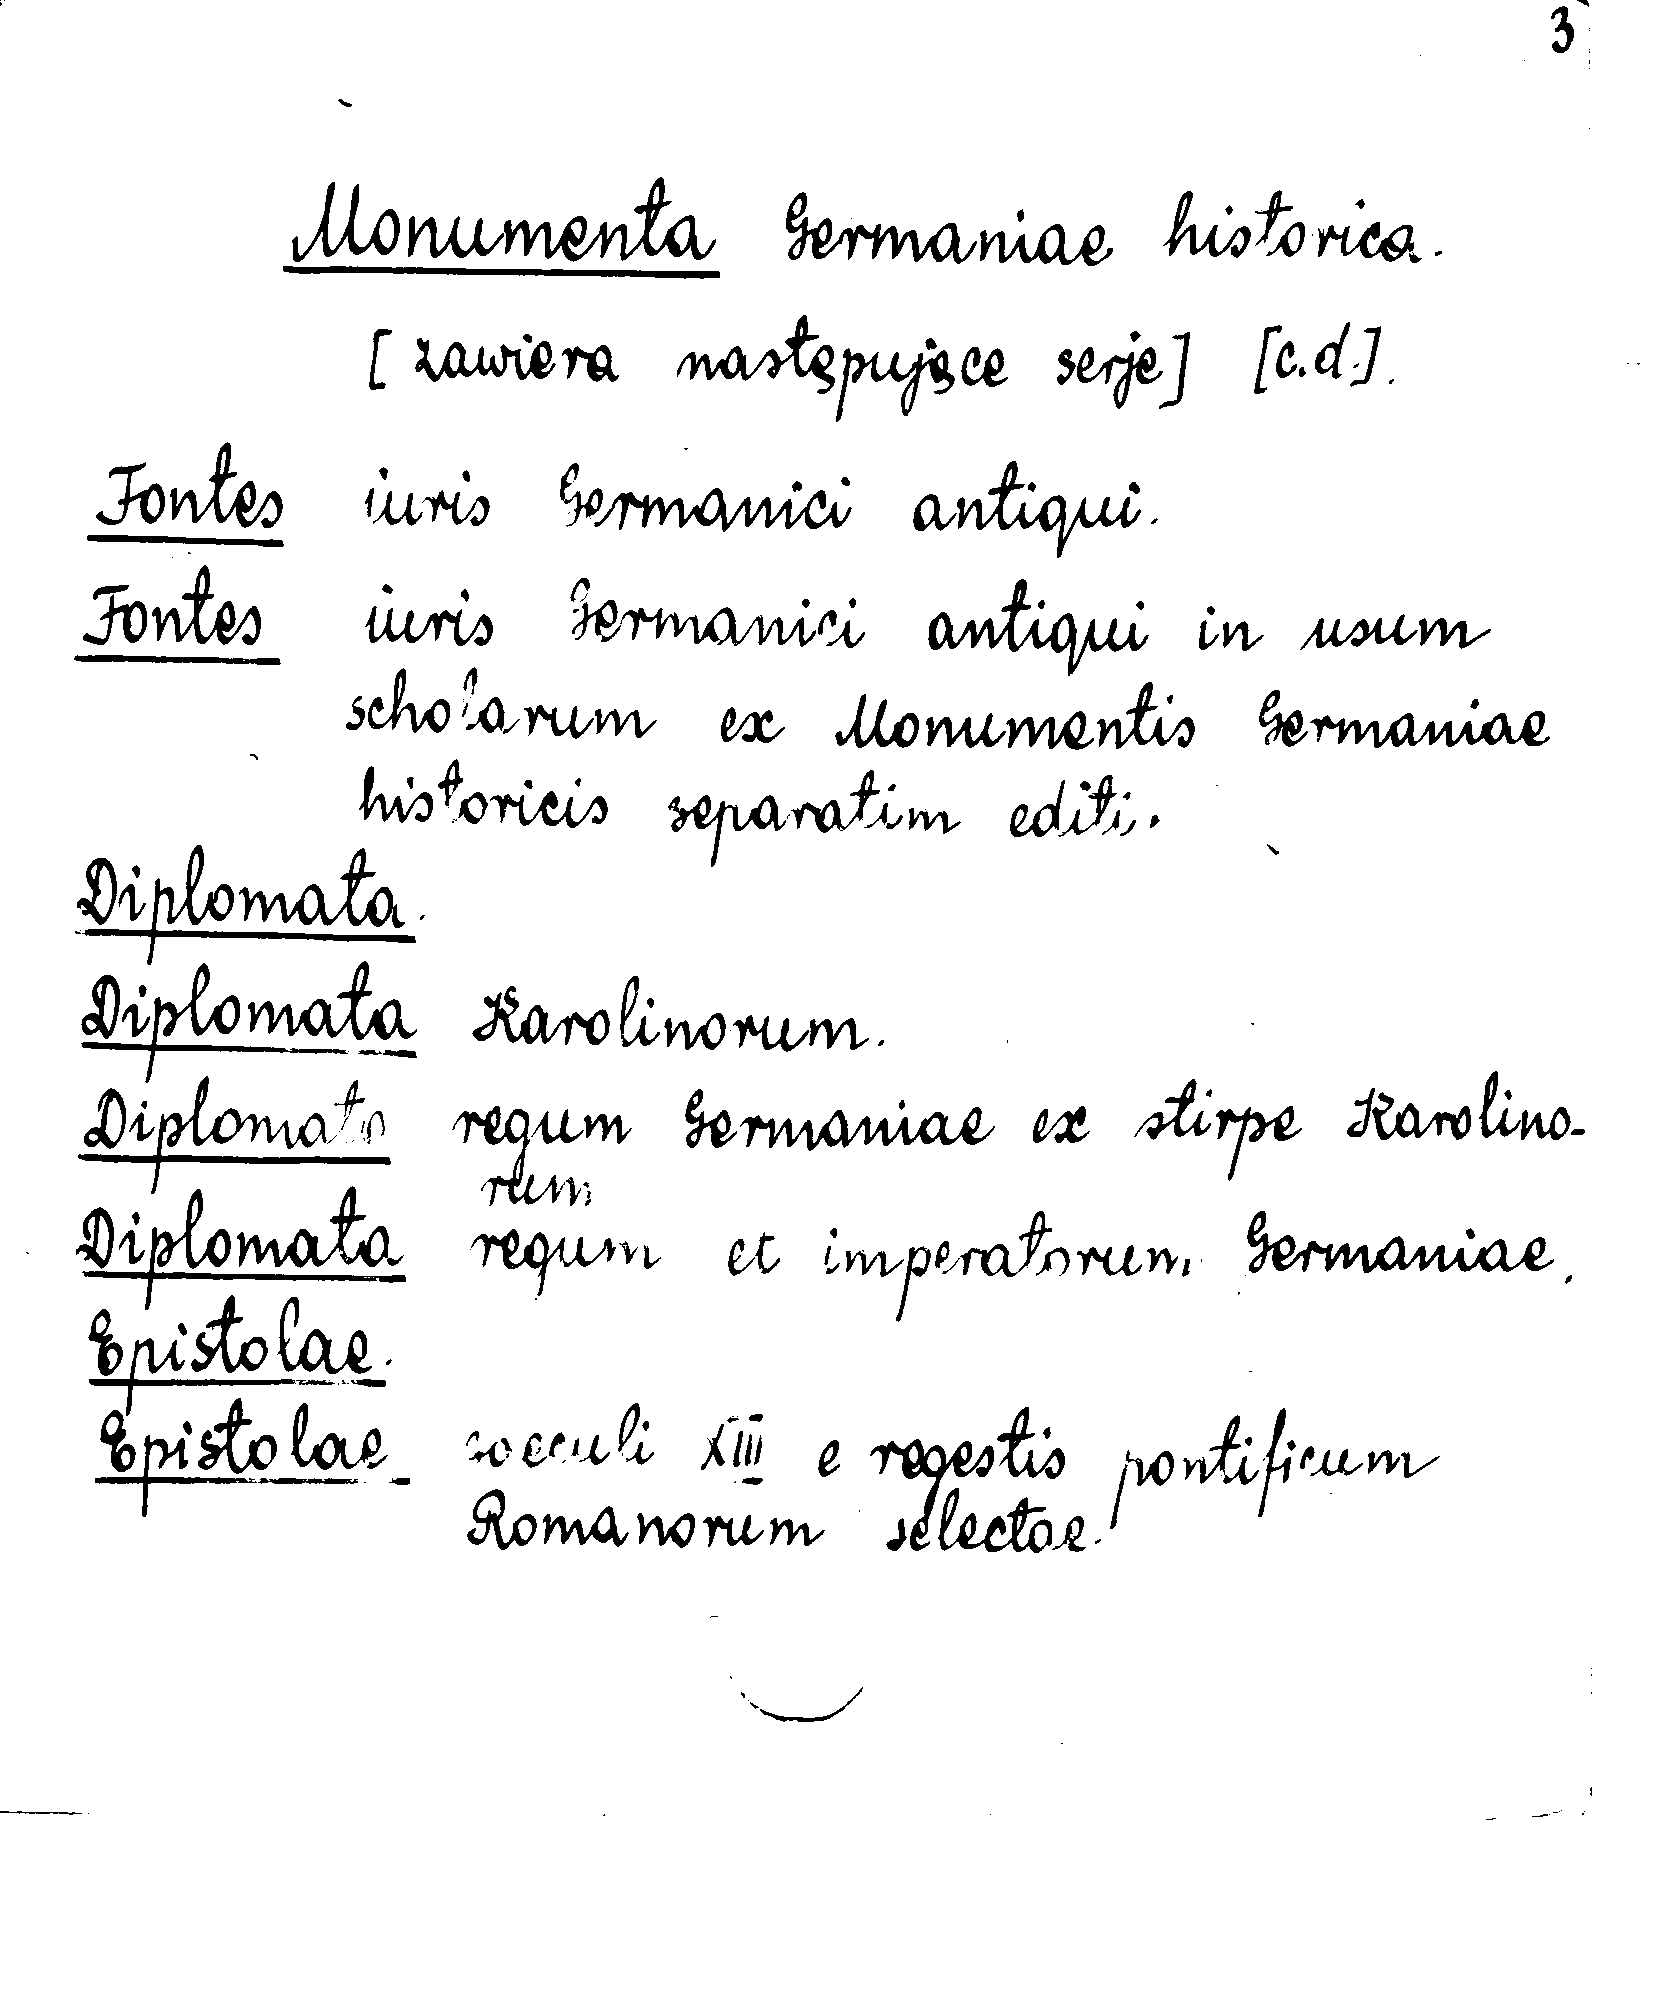 3
Monumenta Germaniae historica.
[zawiera następujące serje] [c.d.].
Fontes iuris Germanici antiqui.
Fontes iuris Germanici antiqui in usum
scholarum ex Monumentis Germaniae
historicis separatim editi.
Diplomata.
Diplomata Karolinorum.
Diplomata regum Germaniae ex stirpe Karolino-
rum
Diplomata regum et imperatorum Germaniae.
Epistolae.
Epistolae saeculi XIII e regestis pontificum
Romanorum selectae.